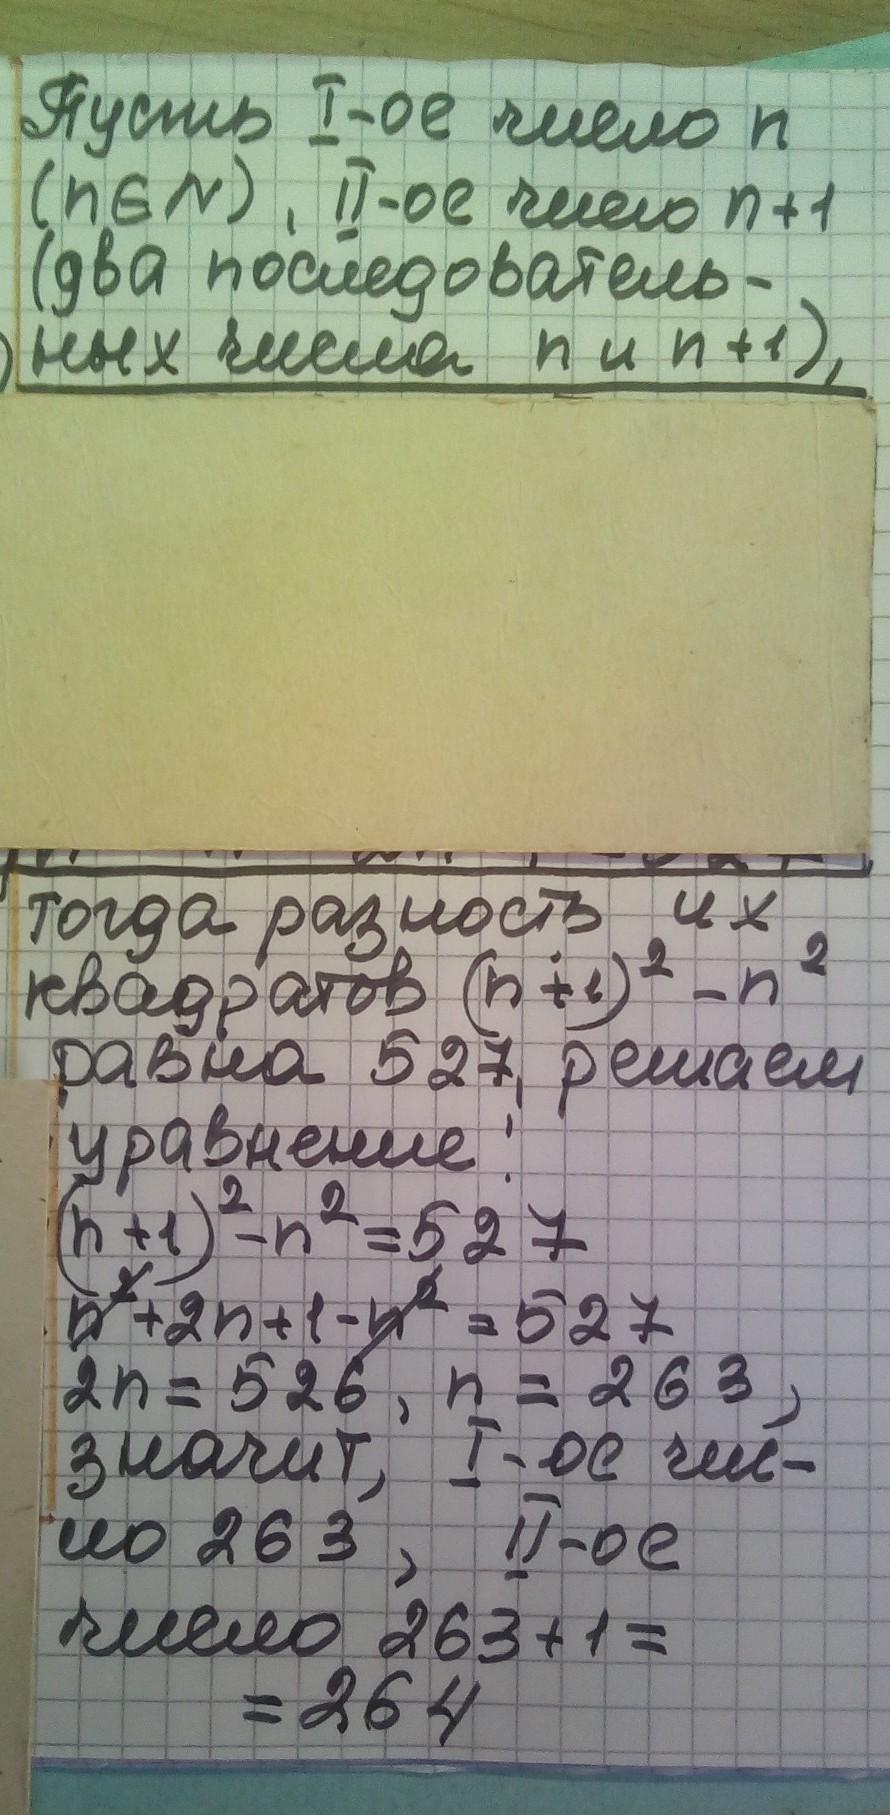 Пусть I-ое число n
(n∈N), II-ое число n+1
(два последователь-
ных числа n и n+1),
тогда разность их
квадратов (n+1)² - n²
равна 527, решаем
уравнение:
(n+1)² - n² = 527
n² + 2n + 1 - n² = 527
2n = 526, n = 263,
значит, I-ое чис-
ло 263, II-ое
число 263+1 =
= 264